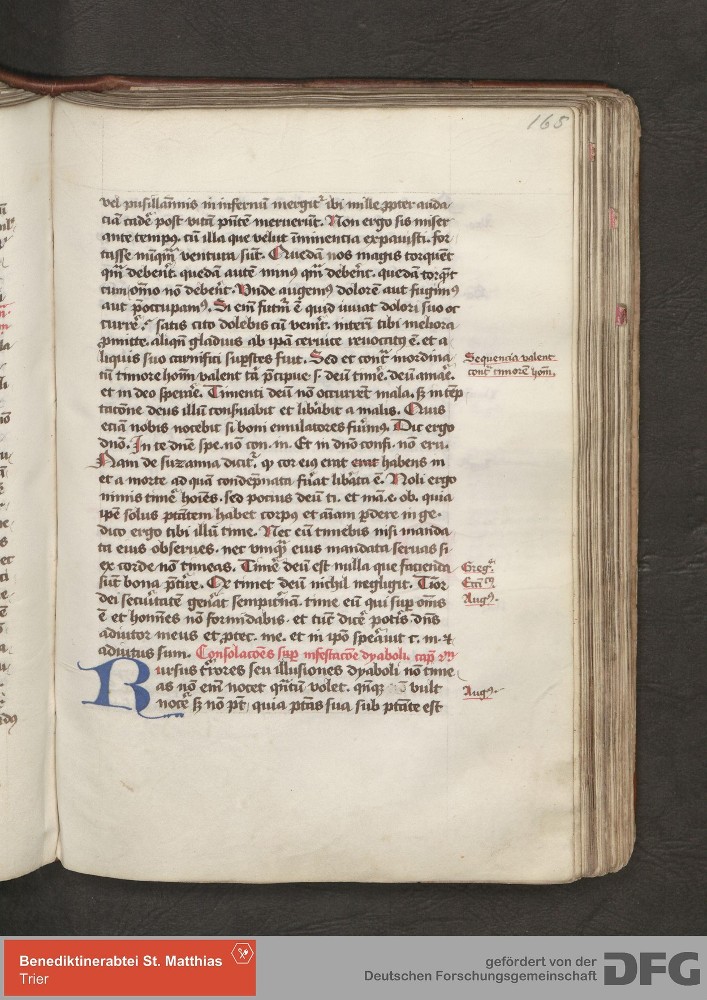 165
vel pusillanimis in infernum mergitr ibi mille ꝓpter auda
ciā cadē post vitā pn̄tē meruerūt. Non ergo sis miser
ante tempꝰ cū illa que velut īminencia expauisti. for
tasse nūqm̄ ventura sūt. Quedā nos magis torquēt
qm̄ debent̄. quedā autē minꝰ qm̄ debēt. quedā torqt̄
cum om̄o nō debēt. Vnde augemꝰ dolorē aut fugimꝰ
aut p̄occupamꝰ. Si em̄ futm̄ ē quid iuuat dolori suo oc
currē. satis cito dolebis cū venit̄. interī tibi meliora
ꝓmitte. aliqn̄ gladius ab ip̄a ceruice reuocatꝰ ē. et a
liquis suo carnifici suꝑstes fiut. Sed et cont̄ inordina
tū timorē hom̄ valent tā p̄cipue .s. deū timē. deū amāe.
et in deo sperāe. Timenti deū nō occurrēt mala. sꝫ in tēp
tacōne deus illū conseruabit et libābit a malis. Quis
etiā nobis nocebit si boni emulatores fuīmꝰ. Dic ergo
dnō. In te dnē spe. nō con. in. Et in dnō confi. nō era.
Nam de suzanna dicit̄. ꝙ cor eiꝰ erat erat habens in
et a morte ad quā condēpnata fūat libāta ē. Noli ergo
nimis timē hoīes. sed pocius deū ti. et mā. e. ob. quia
ip̄e solus ptātem habet corpꝰ et aīam ꝑdere in ge.
dico ergo tibi illū time. Nec eū timebis nisi manda
ta eius obserues. nec vnqꝫ eius mandata seruas si
ex corde nō timeas. Timē deū est nulla que facienda
sūt bona p̄tīre. Qͥ timet deū nichil negligit. Tīor
dei secūitatē genāt sempitn̄ā. time eū qui suꝑ om̄s
ē et homīes nō formidabis. et tūc dicē potīs. dn̄s
adiutor meus et ꝓtec. me. et in ip̄o speāuit c. m. ⁊
adiutus sum. Consolacōes suꝑ infestacōe dyaboli. cap̄
Rursus t̄rores seu illusiones dyaboli nō time
as nō em̄ nocet qn̄tū volet. vult
nocē sꝫ nō pt̄. quia ptās sua sub ptāte est
Sequencia valent
cont̄ timorē hom̄.
Greg.
Augꝰ.
Augꝰ.
Benediktinerabtei St. Matthias
Trier
gefördert von der
Deutschen Forschungsgemeinschaft
DFG